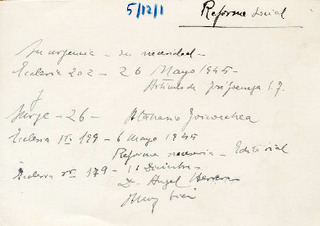 5/12/1
Reforma social
Su urgencia - su necesidad -
Ecclesia 202 - 26 Mayo 1945 -
Artículo de
Surge - 26 -
Ecclesia nº 199 - 6 Mayo 1945
Reforma necesaria - Editorial
Ecclesia nº 179 - 16 Diciembre
D. Angel Herrera
Muy bien